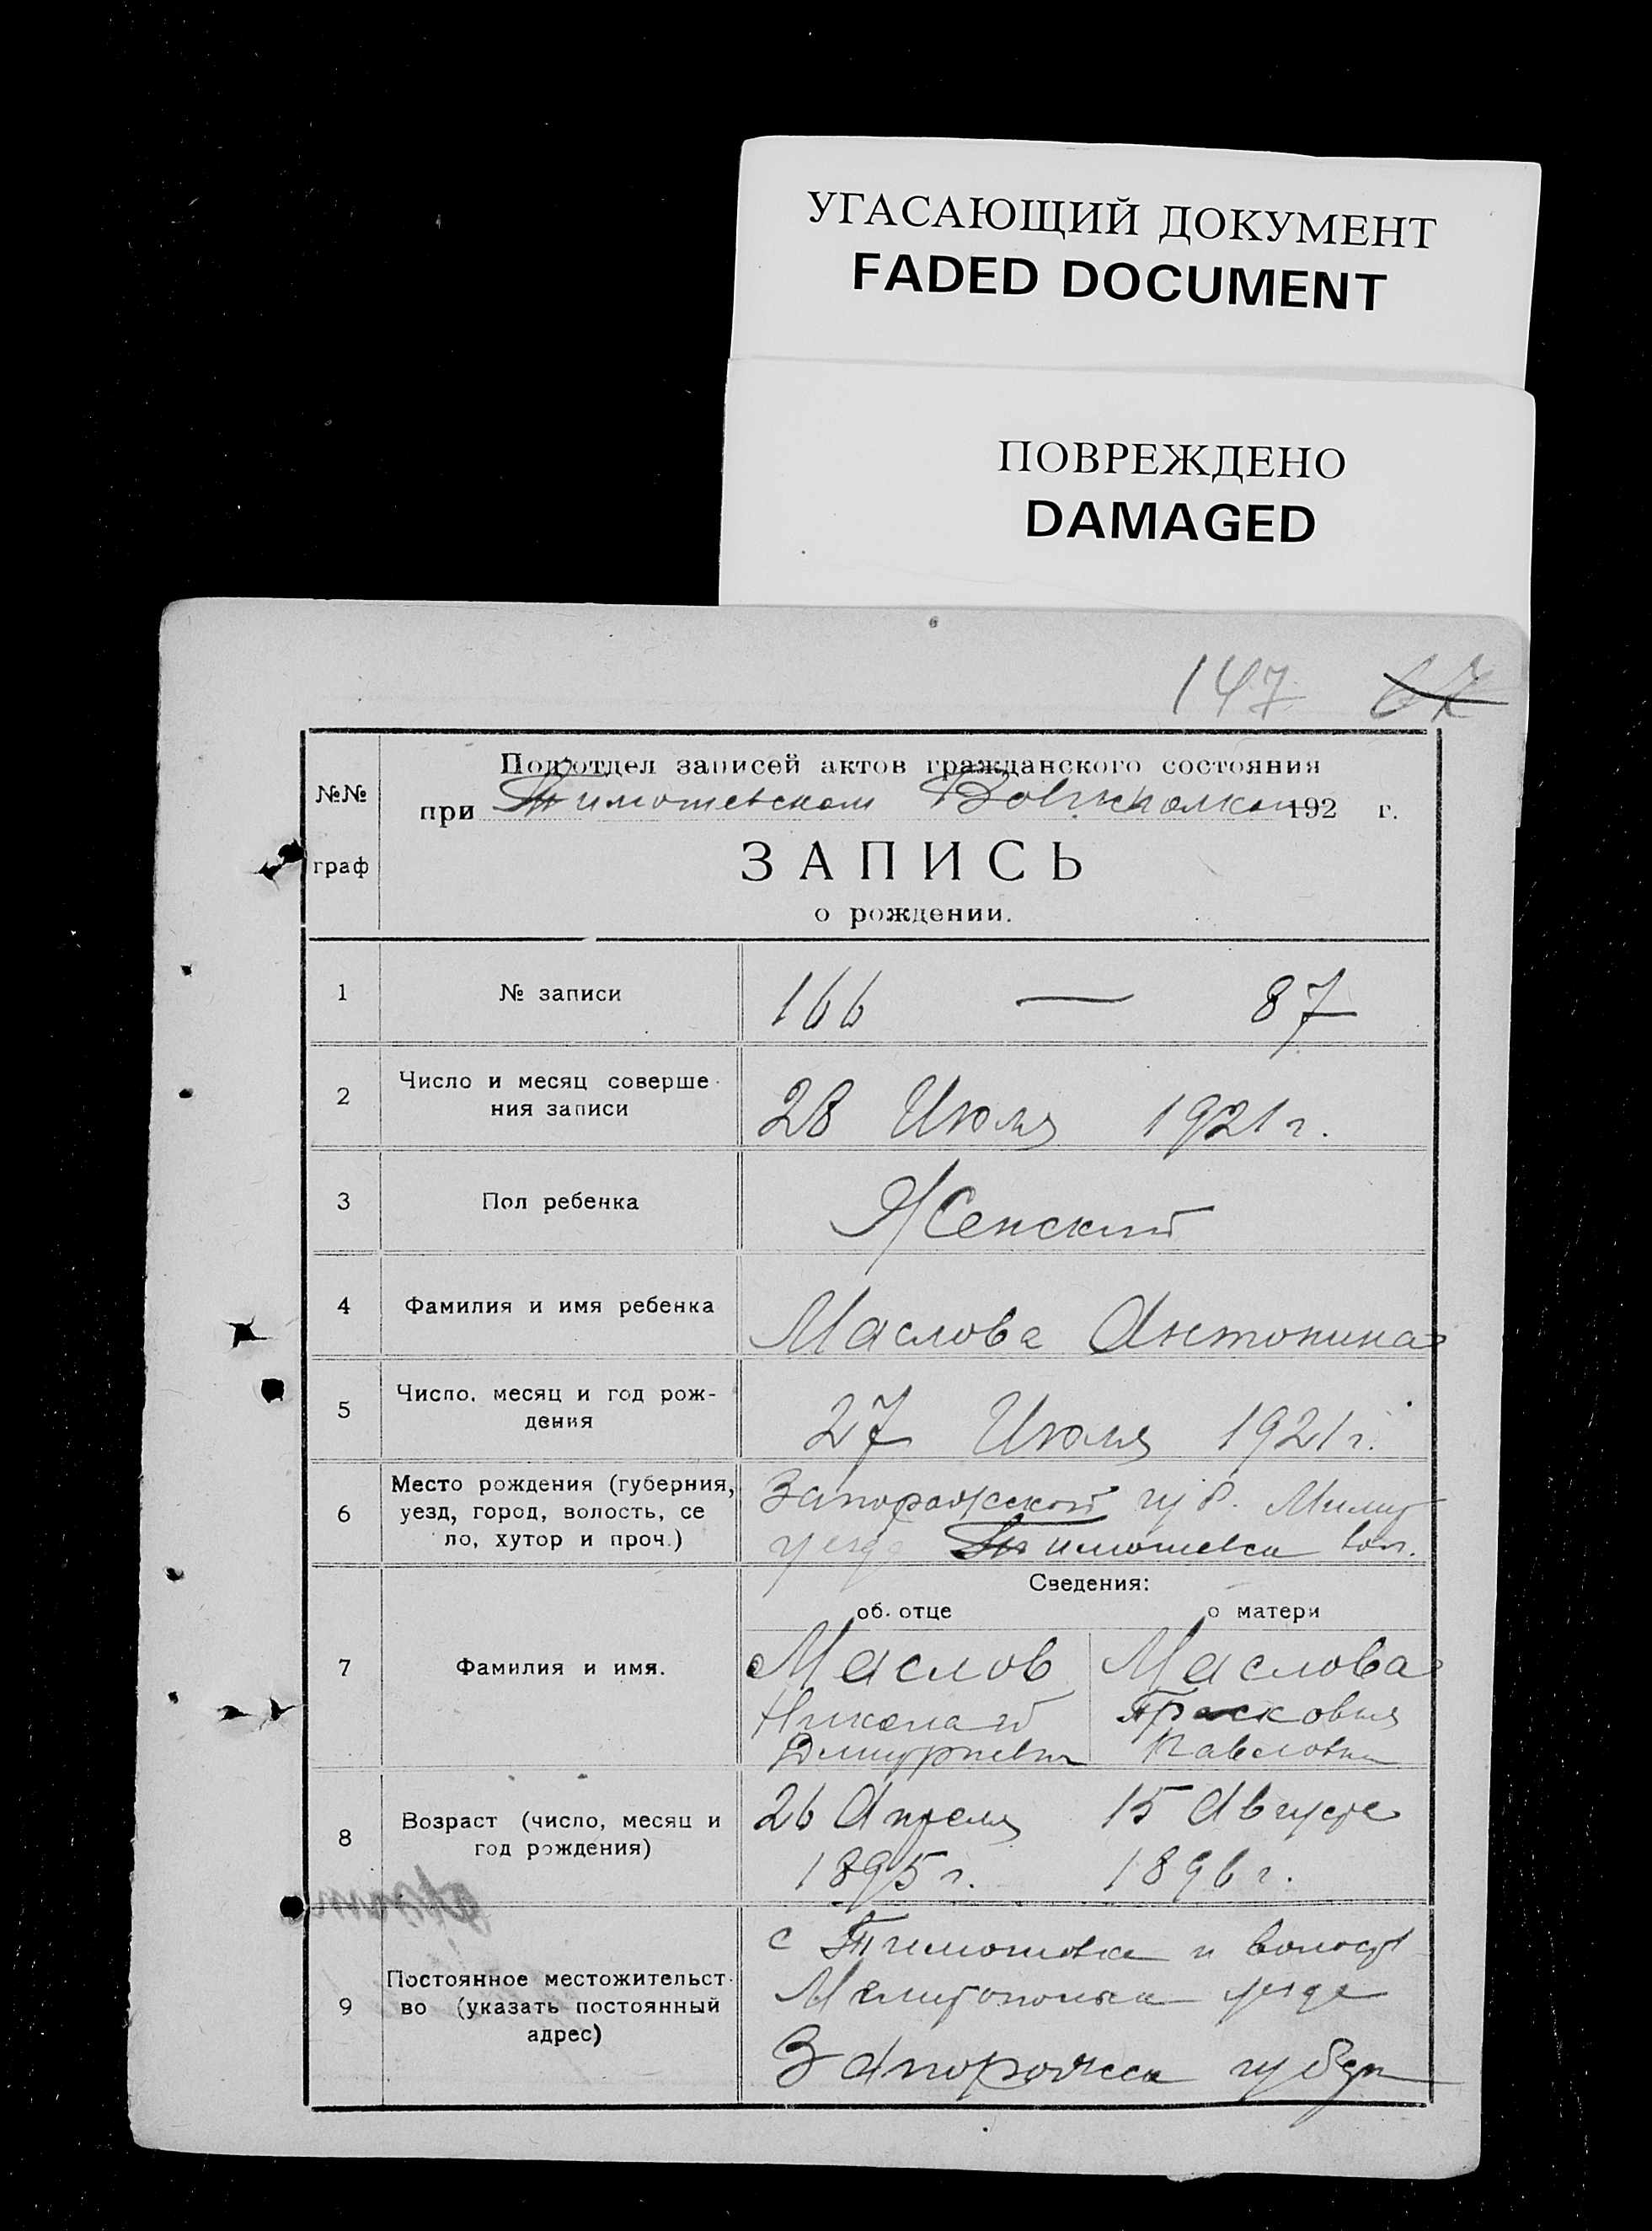 УГАСАЮЩИЙ ДОКУМЕНТ
FADED DOCUMENT
ПОВРЕЖДЕНО
DAMAGED
147
№№
граф
Подотдел записей актов гражданского состояния
при Тимошевском 192 г.
ЗАПИСЬ
о рождении.
1 № записи 166 — 87
2 Число и месяц соверше-
ния записи
28 Июля 1921 г.
3 Пол ребенка Женский
4 Фамилия и имя ребенка Маслова Антонина
5 Число, месяц и год рож-
дения
27 Июля 1921 г.
6 Место рождения (губерния,
уезд, город, волость, се
ло, хутор и проч.)
Запорожской губ. Мелит
уезда Тимошевка вол.
Сведения:
об отце о матери
7 Фамилия и имя.
Маслов Маслова
Николай Прасковия
Дмитриевич Павловна
8 Возраст (число, месяц и
год рождения)
26 Апреля 15 Августа
1895 г. 1896 г.
9 Постоянное местожительст-
во (указать постоянный
адрес)
с Тимошовка и волост
Мелитопольск уезда
Запорожск губерн